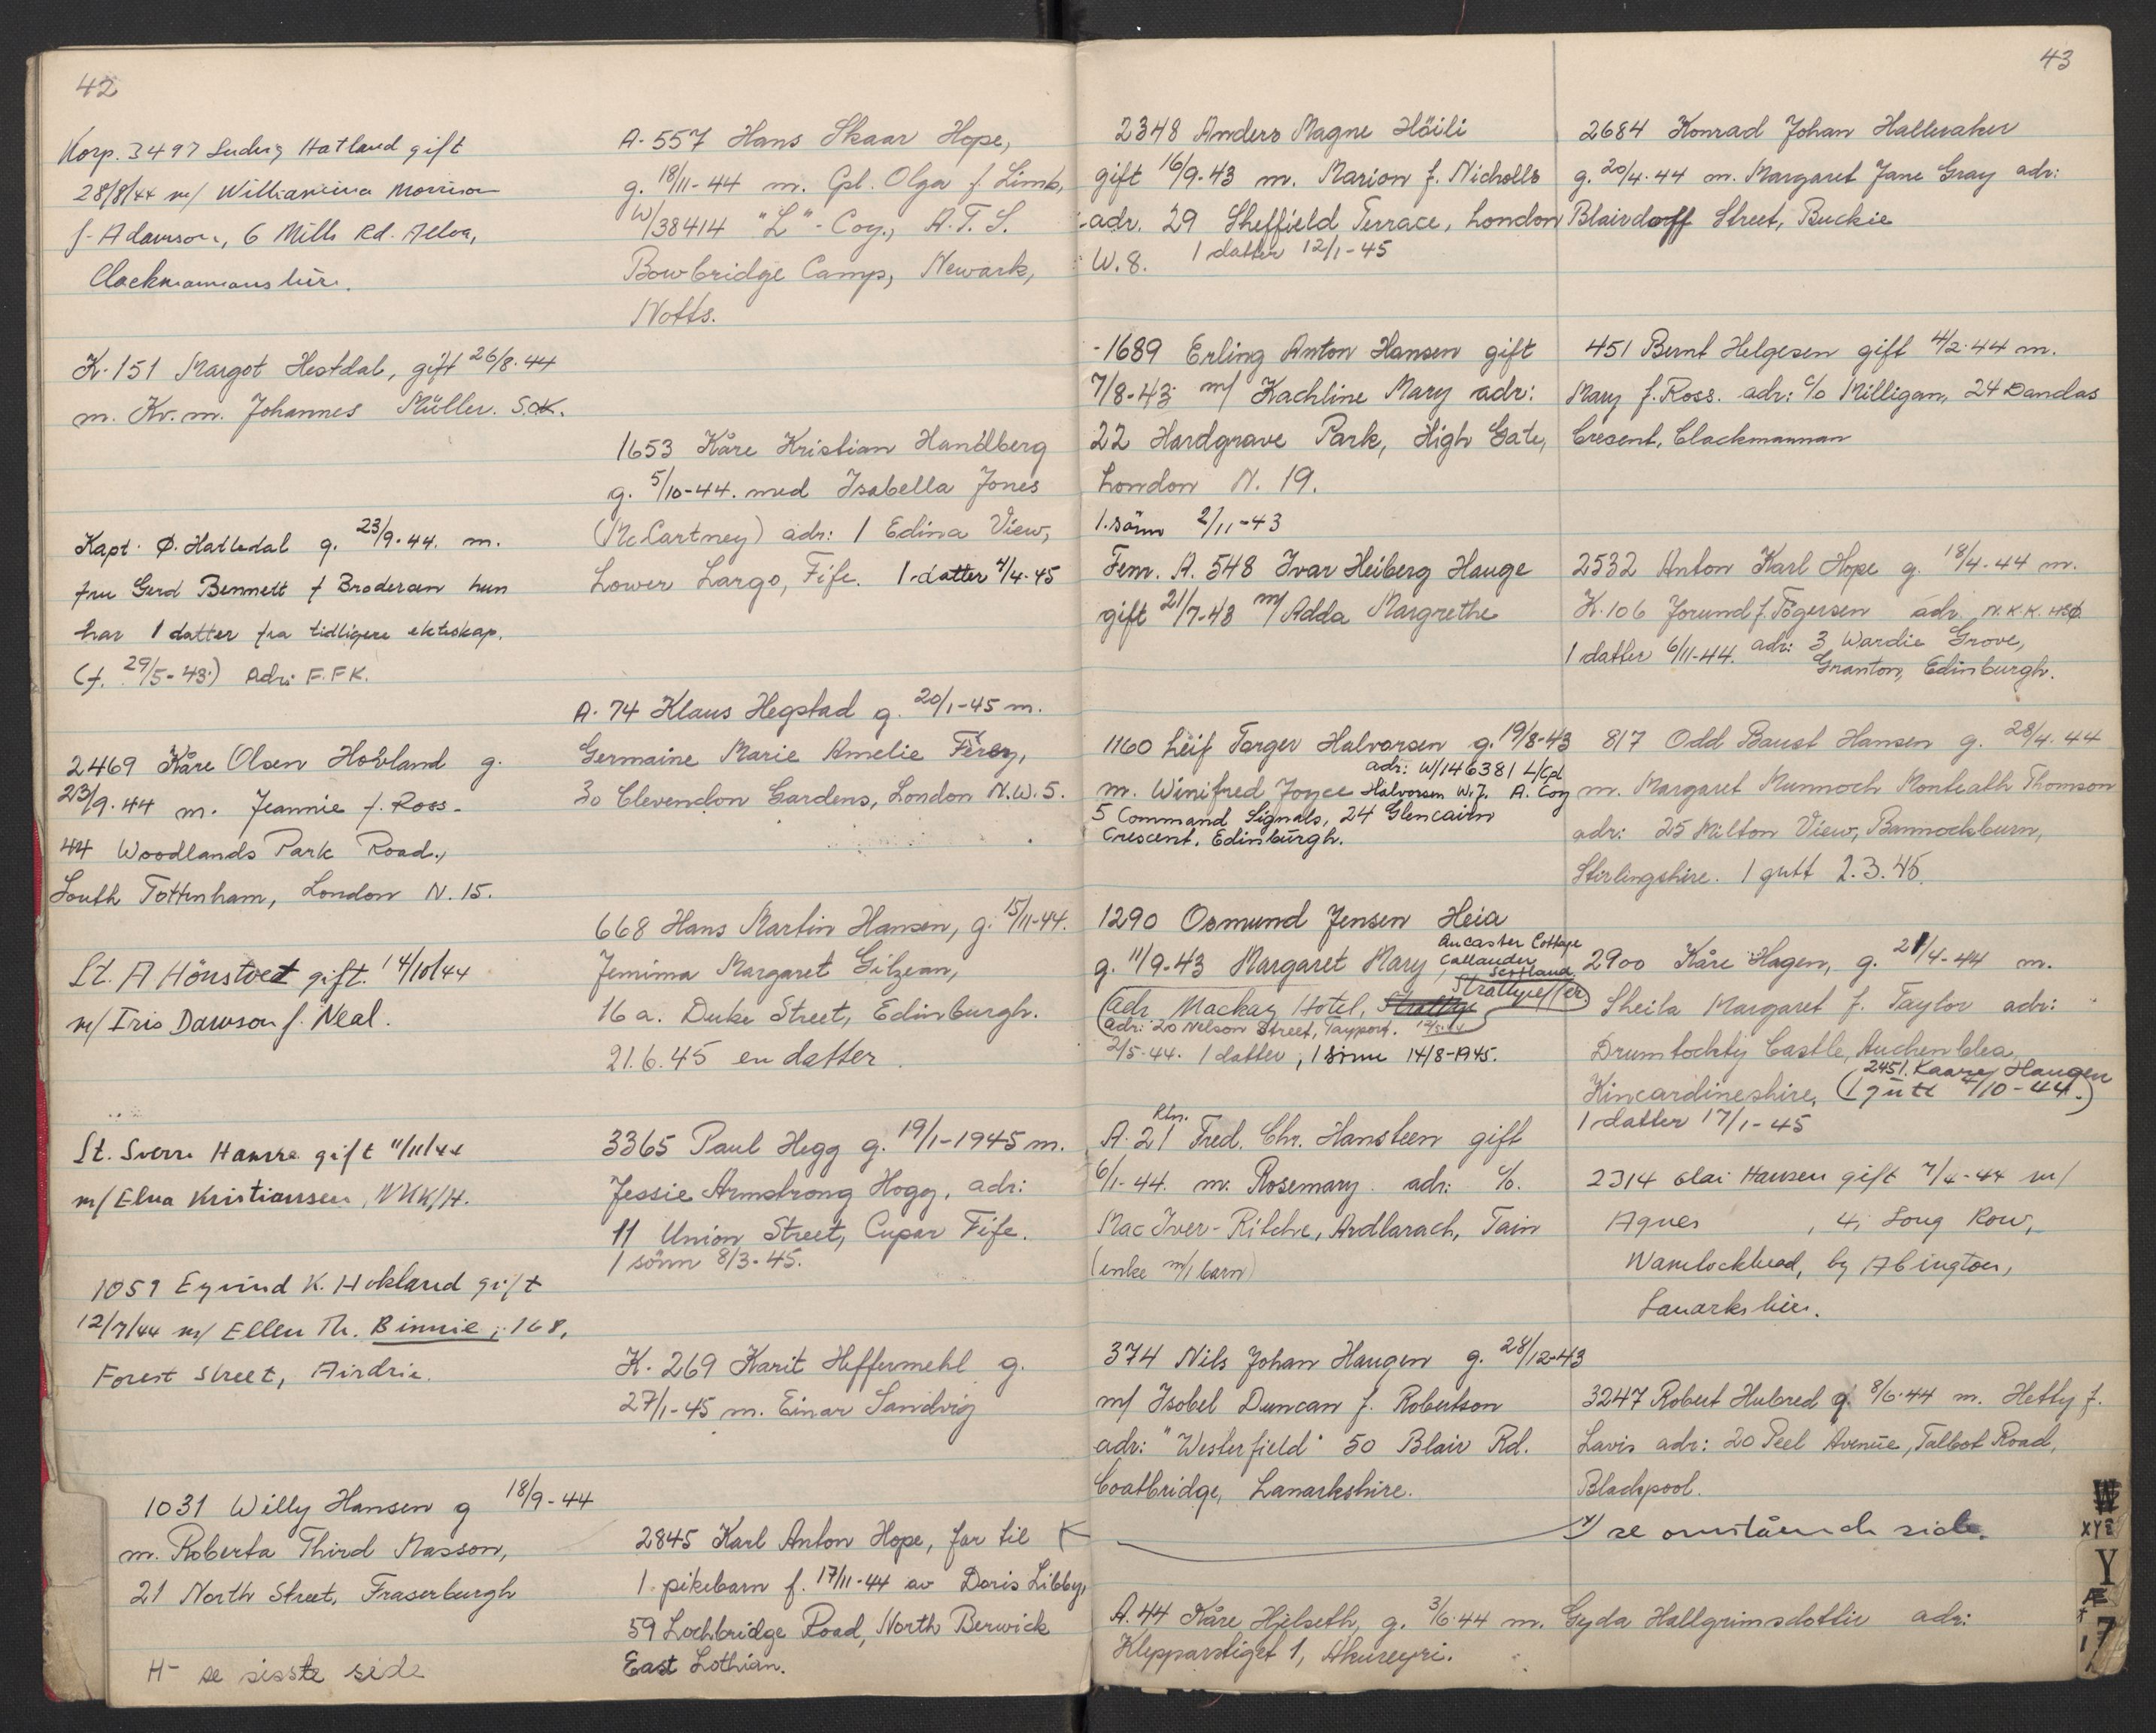 42
Korp. 3497 Ludvig Hatland gift
28/8/44 m/ Williamina Morrison
f. Adamson, 6 Mills Rd. Alloa,
Clackmannanshire.
K. 151 Margot Hestdal, gift 26/8. 44
m. Kv. m. Johannes Müller. S.O.K.
Kapt. Ø. Hatledal g. 23/9. 44. m.
fru Gerd Bennett f Brodersen hun
har 1 datter fra tidligere ekteskap.
(f. 29/5-43.) Adr. F.F.K.
2469 Kåre Olsen Hovland g.
23/9. 44 m. Jeannie f. Ross.
44 Woodlands Park Road.,
South Tottenham, London N. 15.
Lt. A Hönstvet gift. 14/10/44
m/ Iris Dawson f. Neal.
Lt. Sverre Hamre gift 11/11/44
m/ Elna Kristiansen, NKK/H.
1059 Eyvind K. Hokland gift
12/7/44 m/ Ellen Th. Binnie, 168,
Forest Street, Airdrie.
1031 Willy Hansen g 18/9-44
m. Roberta Third Masson,
21 North Street, Fraserburgh
H- se sisste side
A. 557 Hans Skaar Hope,
g. 18/11-44 m. Cpl. Olga f. Limb,
W/38414 "L"- Coy., A.T.S.
Bowbridge Camp, Newark,
Notts.
1653 Kåre Kristian Handberg
g. 5/10-44. med Isabella Jones
(McCartney) adr: 1 Edina View,
Lower Largo, Fife. 1 datter 4/4-45
A. 74 Klaus Hegstad g. 20/1-45 m.
Germaine Marie Amelie
30 Clevendon Gardens, London N.W. 5.
668 Hans Martin Hansen, g. 15/11-44.
Jemima Margaret Gilzean,
16 a. Duke Street, Edinburgh.
21.6.45 en datter.
3365 Paul Hegg g. 19/1-1945 m.
Jessie Armstrong Hogg, adr:
11 Union Street, Cupar Fife.
1 sönn 8/3-45.
K. 269 Karit Heffermehl g.
27/1-45 m. Einar Sandvig
2845 Karl Anton Hope, far til
1 pikebarn f. 17/11-44 av Doris Libby,
59 Lochbridge Road, North Berwick
East Lothian.
43
2348 Anders Magne Höili
gift 16/9-43 m. Marion f. Nicholls
adr. 29 Sheffield Terrace, London
W. 8. 1 datter 12/1-45
1689 Erling Anton Hansen gift
7/8-43 m/ Kachline Mary adr:
22 Hardgrave Park, High Gate,
London N. 19.
1. sönn 2/11-43
Fenr. A. 548 Ivar Heiberg Hauge
gift 21/7-43 m/ Adda Margrethe
1160 Leif Torger Halvorsen g. 19/8-43
adr: W/146381 L/Cpl
m. Winifred Joyce Halvorsen W.J. A. Coy
5 Command Signals, 24 Glencairn
Crescent. Edinburgh.
1290 Osmund Jensen Heia
Ancaster Cottage
g. 11/9-43 Margaret Mary, Callander
Scotland.
Strathpeffer.
(adr. Mackay Hotel,
adr: 20 Nelson Street, Tayport.
2/5-44. 1 datter, 1 sönn 14/8-1945.
Rtm.
A. 21 Fred. Chr. Hansteen gift
6/1-44. m. Rosemary. adr: c/o.
Mac Iver-Ritchie, Ardlarach, Tain
(enke m/1 barn)
374 Nils Johan Haugen g. 28/12-43
m/ Isobel Duncan f. Robertson
adr: "Westerfield" 50 Blair Rd.
Coatbridge, Lanarkshire.
A. 44 Kåre Hjelseth, g. 3/6. 44 m. Gyda Hallgrimsdottir adr:
Klepparstiget 1, Akureyri.
2684 Konrad Johan Hallvaker
g. 20/4. 44 m. Margaret Jane Gray adr:
Blairdaff Street, Buckie
451 Bernt Helgesen gift 4/2. 44 m.
Mary f. Ross. adr: c/o Milligan, 24 Dandas
Cresent, Clackmannan
2532 Anton Karl Hope g. 18/4. 44 m.
K. 106 Jorund f. Tögersen adr. N.K.K. HSØ
1 datter 6/11-44. adr: 3 Wardie Grove,
Granton, Edinburgh.
817 Odd Baust Hansen g. 28/4. 44
m. Margaret Munnoch Monteath Thomson
adr: 25 Milton View, Bannockburn,
Stirlingshire. 1 gutt 2.3.45.
2900 Kåre Hagen, g. 21/4-44 m.
Sheila Margaret f. Taylor adr:
Drumtochty Castle, Auchenblea,
2451. Kaare Haugen
Kincardineshire, (1 gutt 4/10-44.)
1 datter 17/1-45
2314 Olai Hansen gift 7/4-44 m/
Agnes , 4, Long Row,
Wanlockhead, by Abington,
Lanarkshire.
3247 Robert Hubred g. 8/6. 44 m. Hetty f.
Lavis adr: 20 Peel Avenue, Talbot Road,
Blackpool.
x/ se omstående side.
W
XYZ
Y
Æ
7